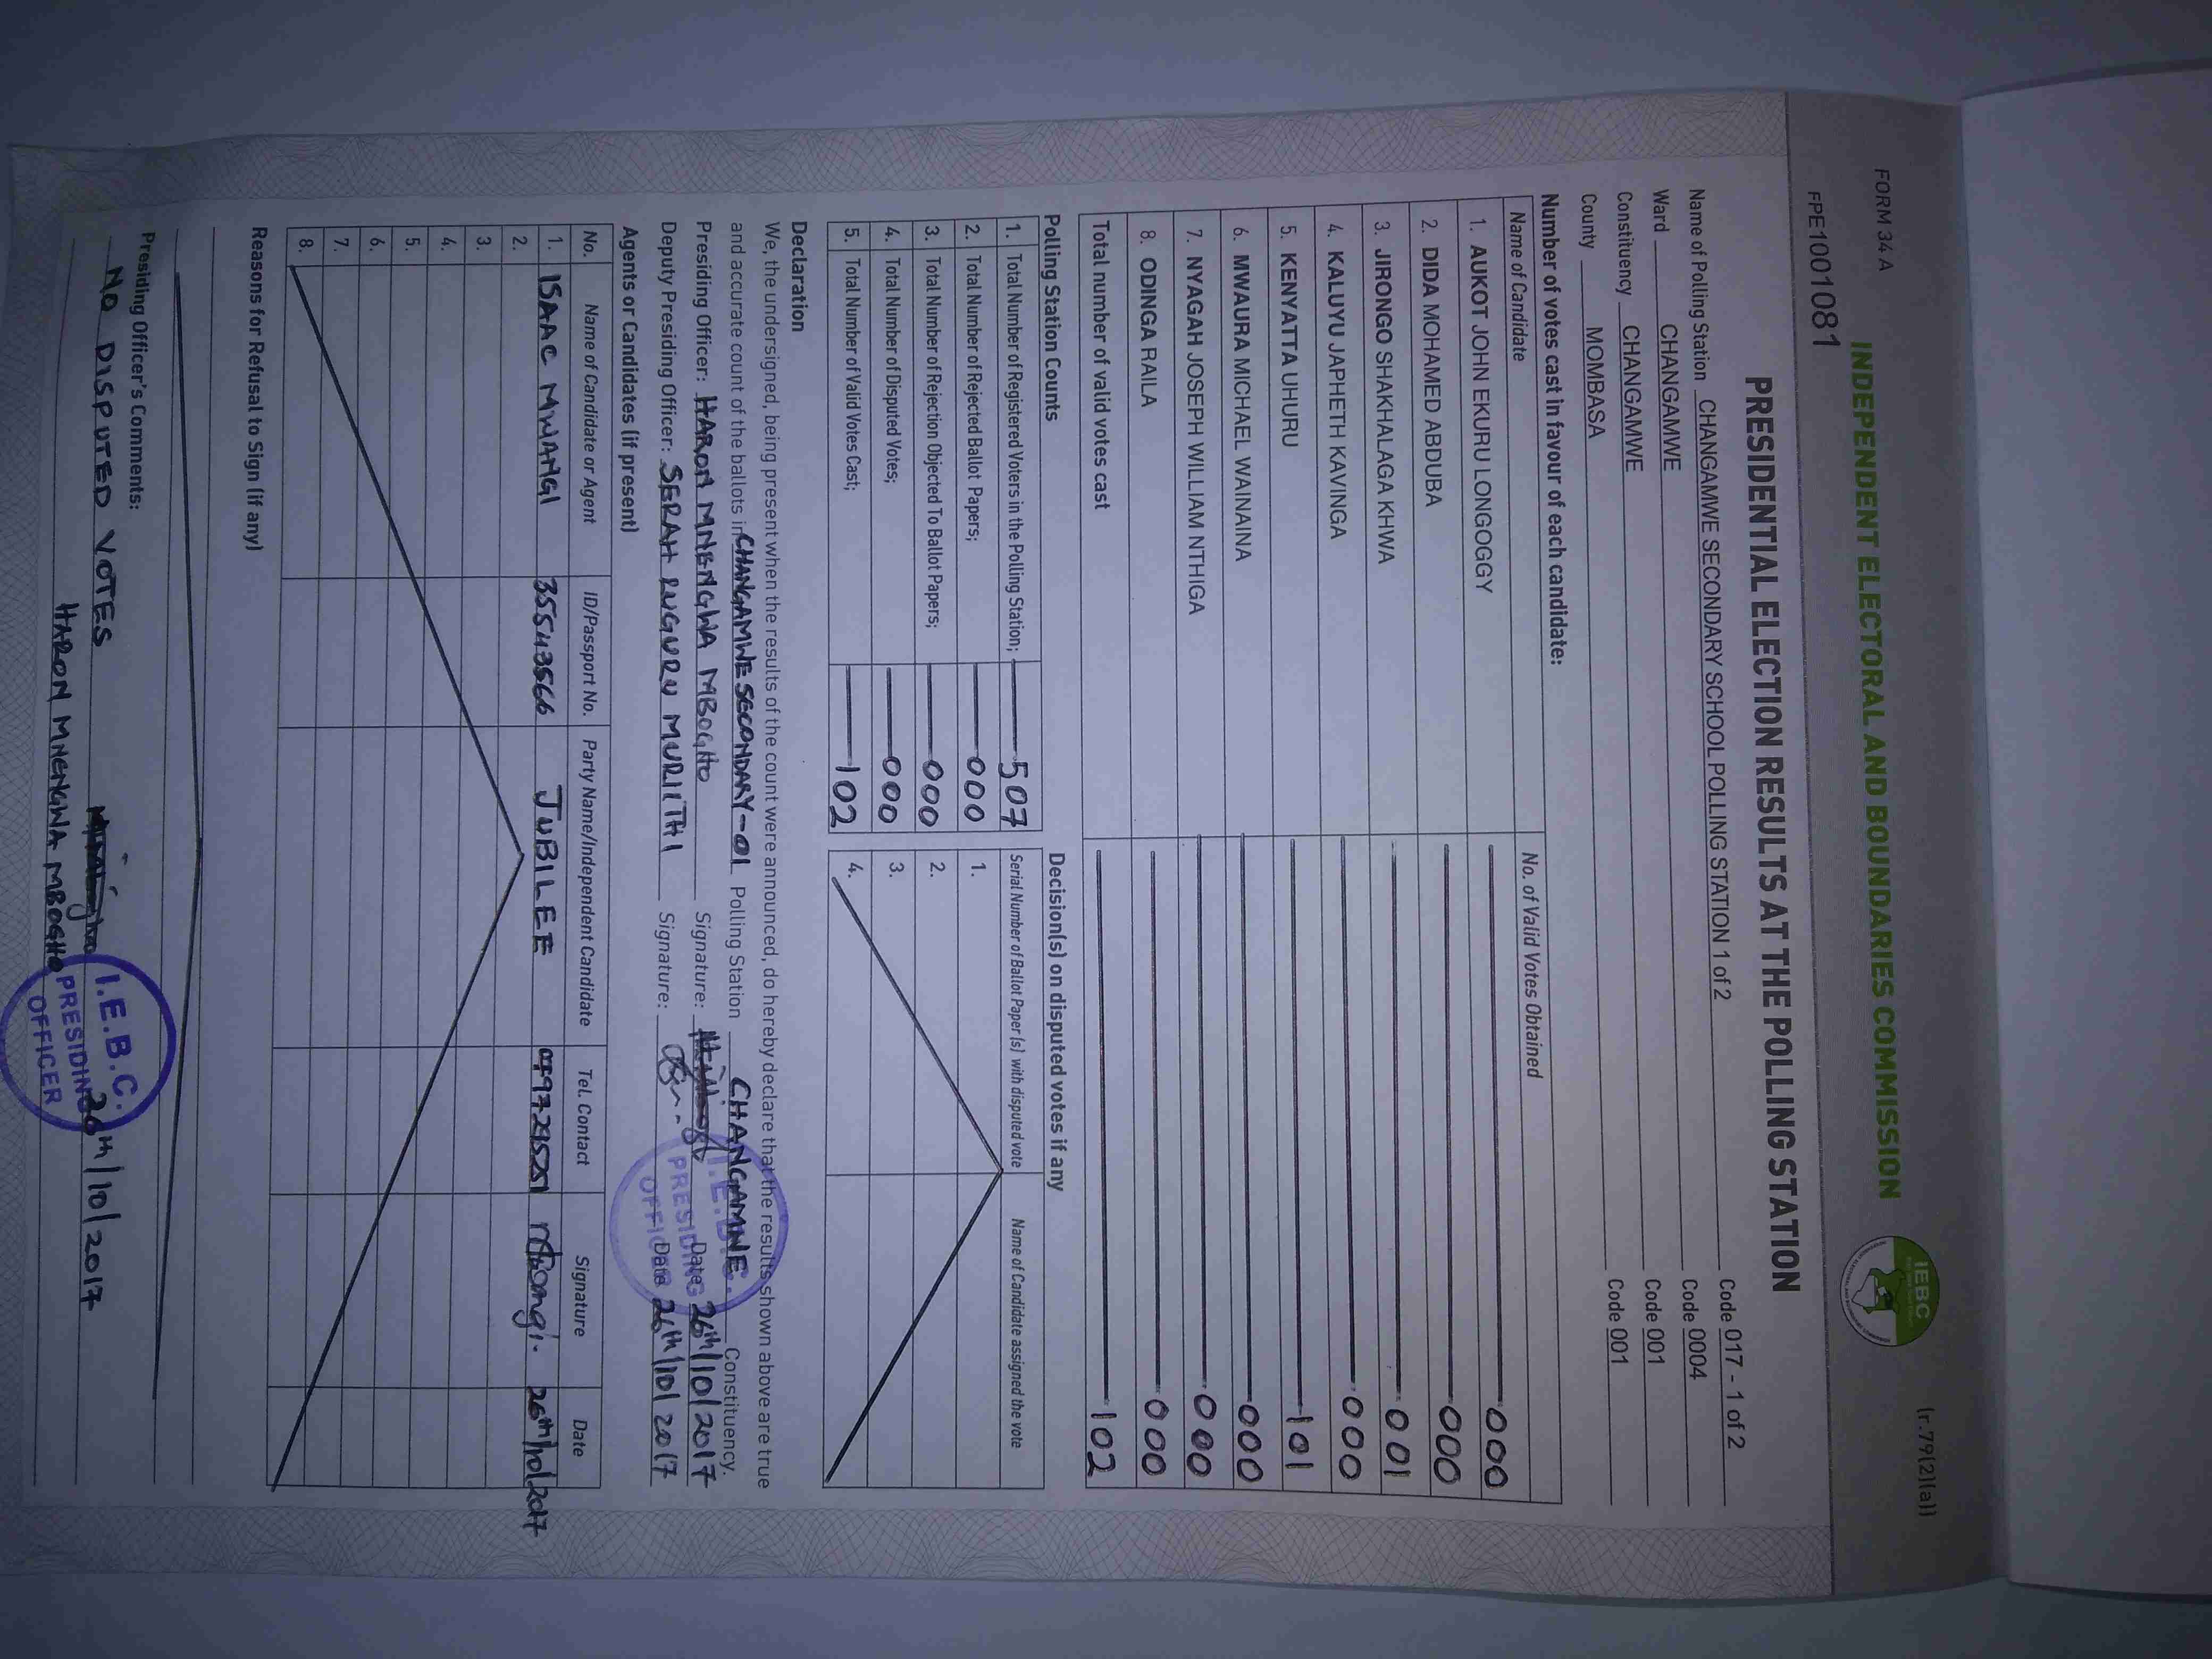 FORM 34 A
(r.79(2)(a))
INDEPENDENT ELECTORAL AND BOUNDARIES COMMISSION
IEBC
FPE1001081
PRESIDENTIAL ELECTION RESULTS AT THE POLLING STATION
Name of Polling Station CHANGAMWE SECONDARY SCHOOL POLLING STATION 1 of 2 Code 017 - 1 of 2
Ward CHANGAMWE Code 0004
Constituency CHANGAMWE Code 001
County MOMBASA Code 001
Number of votes cast in favour of each candidate:
Name of Candidate No. of Valid Votes Obtained
1. AUKOT JOHN EKURU LONGOGGY 000
2. DIDA MOHAMED ABDUBA 000
3. JIRONGO SHAKHALAGA KHWA 001
4. KALUYU JAPHETH KAVINGA 000
5. KENYATTA UHURU 101
6. MWAURA MICHAEL WAINAINA 000
7. NYAGAH JOSEPH WILLIAM NTHIGA 000
8. ODINGA RAILA 000
Total number of valid votes cast 102
Polling Station Counts
1. Total Number of Registered Voters in the Polling Station; 507
2. Total Number of Rejected Ballot Papers; 000
3. Total Number of Rejection Objected To Ballot Papers; 000
4. Total Number of Disputed Votes; 000
5. Total Number of Valid Votes Cast; 102
Decision(s) on disputed votes if any
Serial Number of Ballot Paper (s) with disputed vote Name of Candidate assigned the vote
1.
2.
3.
4.
Declaration
We, the undersigned, being present when the results of the count were announced, do hereby declare that the results shown above are true
and accurate count of the ballots in CHANGAMWE SECONDARY-01 Polling Station CHANGAMWE Constituency.
Presiding Officer: HARON MNENGWA MBOGHO Signature: Date 26th/10/2017
Deputy Presiding Officer: SERAH MURIITHI Signature: Date 26th/10/2017
I.E.B.C.
PRESIDING
OFFICER
Agents or Candidates (if present)
No. Name of Candidate or Agent ID/Passport No. Party Name/Independent Candidate Tel. Contact Signature Date
1. ISAAC MWANGI 35543566 JUBILEE 26th/10/2017
2.
3.
4.
5.
6.
7.
8.
Reasons for Refusal to Sign (if any)
Presiding Officer's Comments:
NO DISPUTED VOTES 26th/10/2017
HARON MNENGWA MBOGHO
I.E.B.C.
PRESIDING
OFFICER